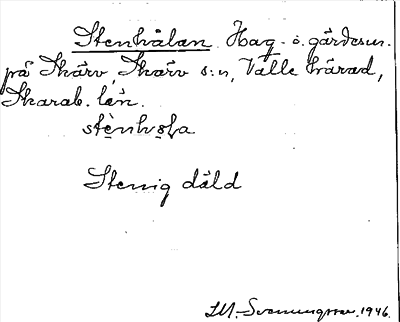 Stenhålan Hag- o. gärdesn.
på Skärv, Skärv s:n, Valle härad,
Skarab. län.
Stenig däld
1946.